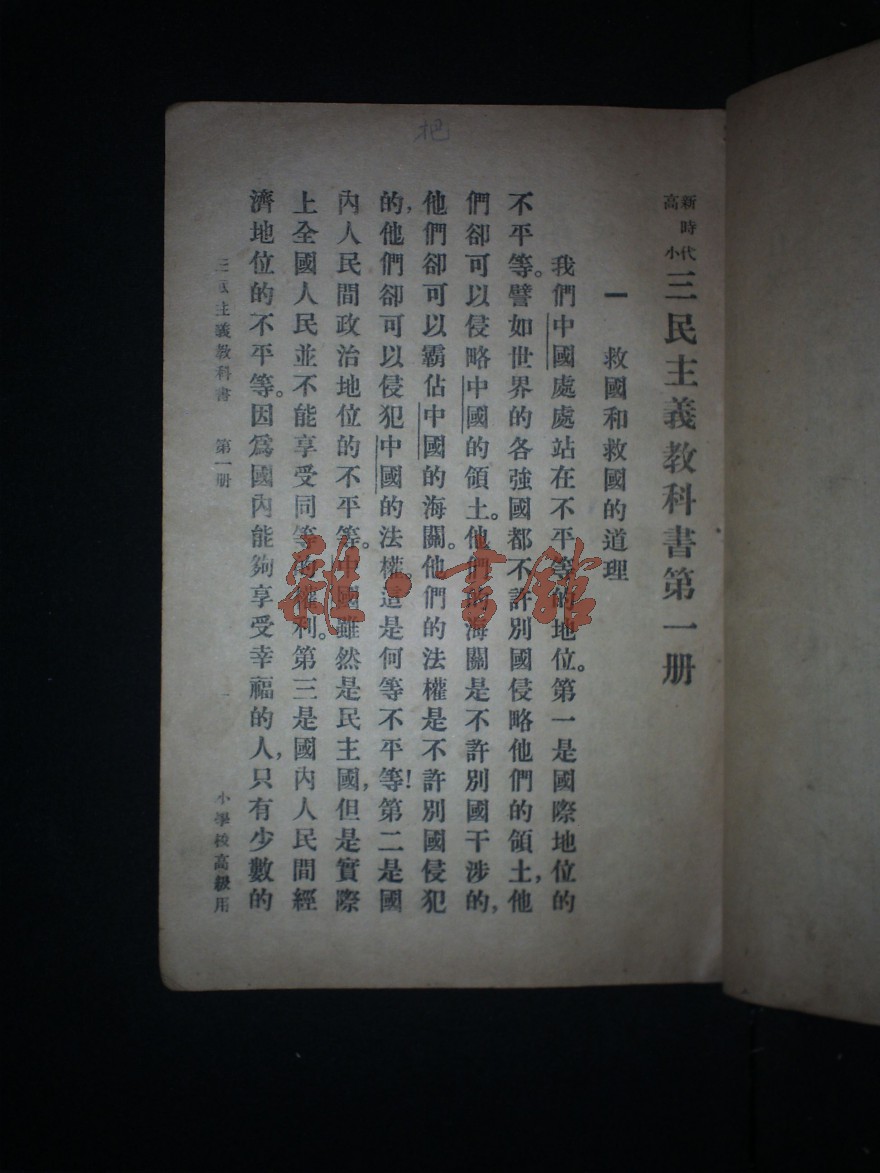 把
新時代
高小
三民主義教科書第一册
一 救國和救國的道理
我們中國處處站在不平等的地位。第一是國際地位的
不平等。譬如世界的各強國都不許別國侵略他們的領土，他
們卻可以侵略中國的領土。他們的海關是不許別國干涉的，
他們卻可以霸佔中國的海關。他們的法權是不許別國侵犯
的，他們卻可以侵犯中國的法權。這是何等不平等！第二是國
內人民間政治地位的不平等。中國雖然是民主國，但是實際
上全國人民並不能享受同等的權利。第三是國內人民間經
濟地位的不平等。因為國內能夠享受幸福的人，只有少數的
三民主義教科書 第一册 一 小學校高級用
雜·書館